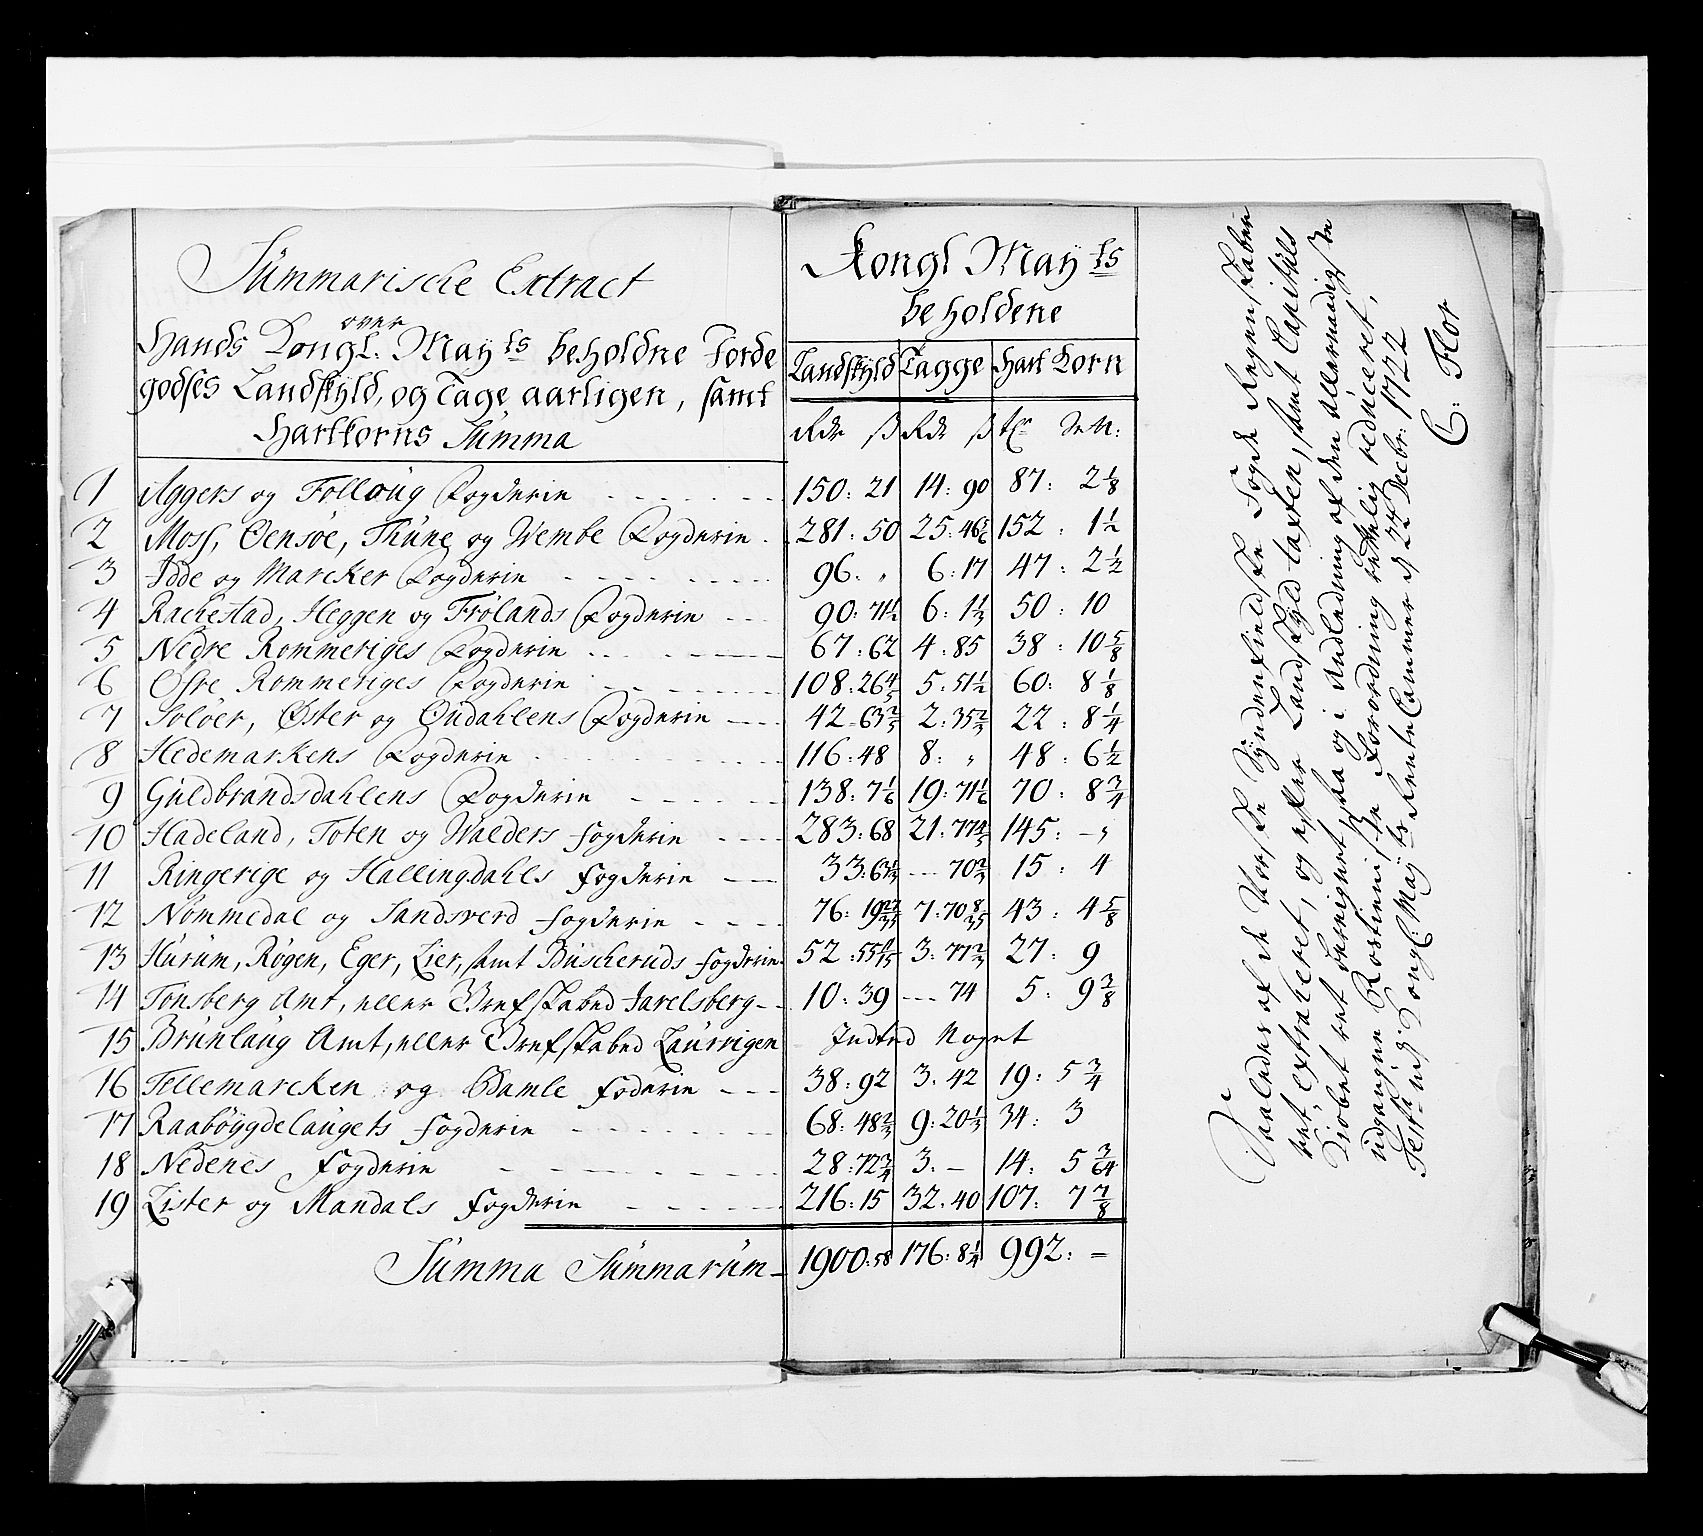 Summarische Extract
over
Hands Kongl. May ts beholdne Jorde
godses Landskyld, og Tage aarligen, samt
Hartkorns Summa
Kongl May ts
beholdene
Landskyld Tagge Hart Korn
Rdr ß Rdr ß
1 Aggers og Folloug Fogderie 150: 21 14: 90 87: 2 1/8
2 Moss, Oensøe, Thune og Wembe Fogderie 281: 50 25: 152: 1 1/2
3 Idde og Marcker Fogderie 96: " 6: 17 47: 2 1/2
4 Rachestad, Heggen og Frølands Fogderie 90: 71 1/2 6: 1 1/3 50: 10
5 Nedre Rommeriges Fogderie 67: 62 4: 85 38: 10 5/8
6 Øfre Rommeriges Fogderie 108: 26 4/5 5: 51 1/2 60: 8 1/8
7 Soløer, Øster og Oudahlens Fogderie 42: 63 2/3 2: 35 2/3 22: 8 1/4
8 Hedemarkens Fogderie 116: 48 8: " 48: 6 1/2
9 Guldbrandsdahlens Fogderie 138: 7 1/6 19: 71 1/6 70: 8 3/4
10 Hadeland, Toten og Walders fogderie 283: 68 21: 77 4/5 145: - "
11 Ringerige og Hallingdahls fogderie 33: --- 70 2/3 15: 4
12 Nommedal og Sandsverd fogderie 76: 7: 70 8/35 43: 4 5/8
13 Hurum, Røgen, Eger, Lier, samt Buscheruds fogderie 52: 3: 77 2/3 27: 9
14 Tønsberg Amt, eller Grefskabed Jarelsberg 10: 39 --- 74 5: 9 3/8
15 Brunlaug Amt, eller Grefskabed Laurvigen Inted Noget
16 Tellemarcken og Bamle foderie 38: 92 3: 42 19: 5 3/4
17 Raabøygdelaugets fogderie 68: 48 2/3 9: 20 1/3 34: 3
18 Nedenes fogderie 28: 72 3/4 3: - 14: 5 3/64
19 Lister og Mandals fogderie 216: 15 32: 40 107: 7 7/8
Summa Summarum 1900: 58 176: 8 1/4 992: -
Saaledes af de Norske Syndenfieldske Fogde Regenskaber
vet extraheret, og efter Landskyld taxten, samt Capitals
Kiøbet vet beregnet, saa og i Anledning af den allernaadigste
udgangne Rostieniste Forordning rettelig reduceret,
Test. ud i Kongl: May ts Rente Cammer d 22 Decbr: 1722
C: Flor